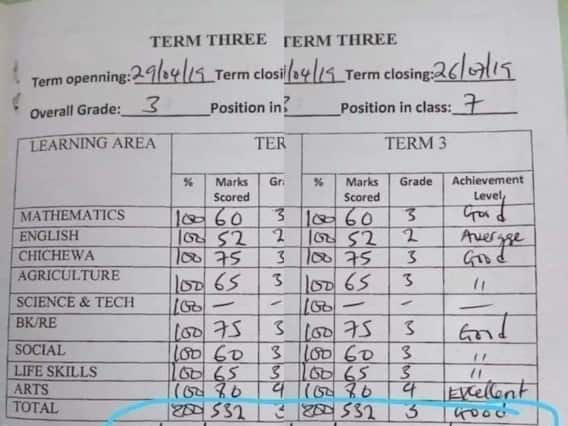 TERM THREE TERM THREE
Term openning: 29/04/19 Term closi /04/19 Term closing: 26/07/19
Overall Grade: 3 Position in 3 Position in class: 7
LEARNING AREA TER TERM 3
% Marks Scored Gr % Marks Scored Grade Achievement Level
MATHEMATICS 100 60 3 100 60 3 Good
ENGLISH 100 52 2 100 52 2 Average
CHICHEWA 100 75 3 100 75 3 Good
AGRICULTURE 100 65 3 100 65 3 "
SCIENCE & TECH 100 — 100 — — —
BK/RE 100 75 3 100 75 3 Good
SOCIAL 100 60 3 100 60 3 "
LIFE SKILLS 100 65 3 100 65 3 "
ARTS 100 80 4 100 80 4 Excellent
TOTAL 800 532 3 800 532 3 Good